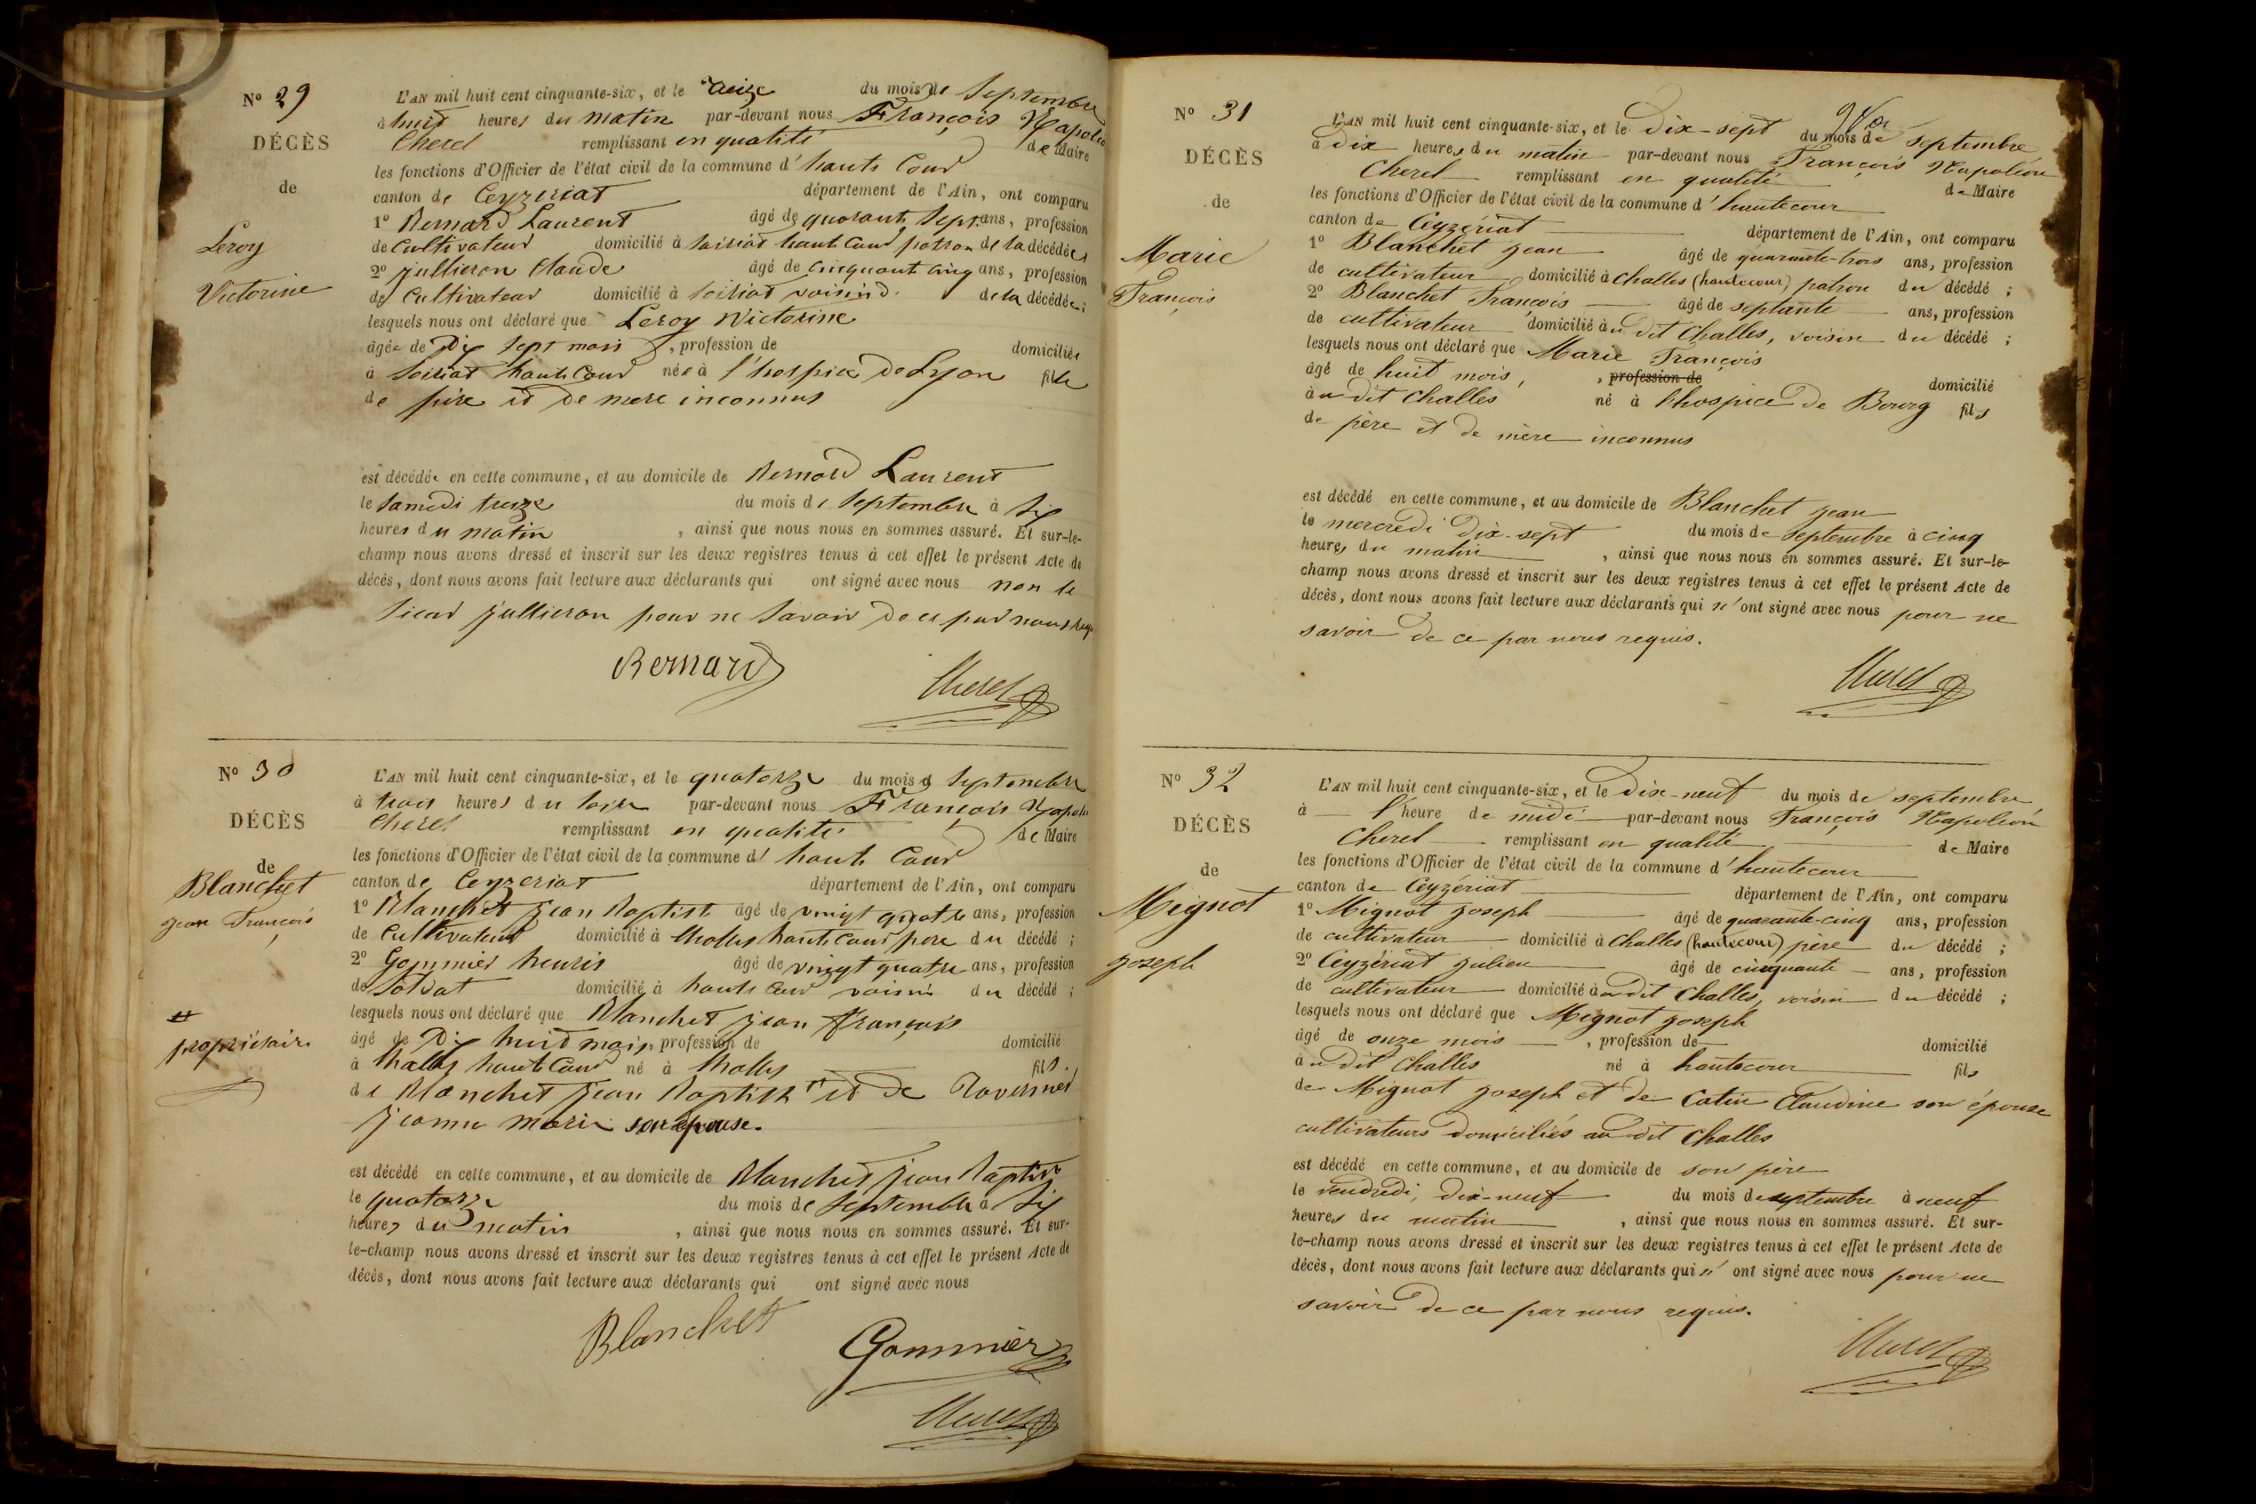 N° 29
DÉCÈS
de
Leroy
Victorine
L'AN mil huit cent cinquante-six, et le du mois de Septembre
à huit heures du matin par-devant nous François Napoléon
Cherel remplissant en qualité de Maire
les fonctions d'Officier de l'état civil de la commune d' haute Cour
canton de Ceyzeriat département de l'Ain, ont comparu
1° Bernard Laurent âgé de quarante Sept ans, profession
de Cultivateur domicilié à haute Cour patron de la décédée
2° Jullieron Claude âgé de cinquante cinq ans, profession
de Cultivateur domicilié à voisin de la décédée;
lesquels nous ont déclaré que Leroy Victorine
âgée de Dix Sept mois, profession de domiciliée
à haute Cour née à l'hospice de Lyon fille
de père et de mère inconnus
est décédée en cette commune, et au domicile de Bernard Laurent
le Samedi treize du mois de Septembre à Six
heures du matin, ainsi que nous nous en sommes assuré. Et sur-le-
champ nous avons dressé et inscrit sur les deux registres tenus à cet effet le présent Acte de
décès, dont nous avons fait lecture aux déclarants qui ont signé avec nous non le
Sieur Jullieron pour ne Savoir de ce par nous
Bernard
Cherel
N° 30
DÉCÈS
de
Blanchet
Jean François
propriétaire
L'AN mil huit cent cinquante-six, et le quatorze du mois de Septembre
à trois heures du Soir par-devant nous François Napoléon
Cherel remplissant en qualité de Maire
les fonctions d'Officier de l'état civil de la commune d' haute Cour
canton de Ceyzeriat département de l'Ain, ont comparu
1° Blanchet Jean Baptiste âgé de vingt quatre ans, profession
de Cultivateur domicilié à Challes haute Cour père du décédé;
2° Gommier henris âgé de vingt quatre ans, profession
de Soldat domicilié à haute Cour voisin du décédé;
lesquels nous ont déclaré que Blanchet Jean François
âgé de Dix huit mois, profession de domicilié
à Challes haute Cour né à Challes fils
de Blanchet Jean Baptiste et de Tavernier
Jeanne Marie son épouse.
est décédé en cette commune, et au domicile de Blanchet Jean Baptiste
le quatorze du mois de Septembre à Six
heures du matin, ainsi que nous nous en sommes assuré. Et sur-
le-champ nous avons dressé et inscrit sur les deux registres tenus à cet effet le présent Acte de
décès, dont nous avons fait lecture aux déclarants qui ont signé avec nous
Blanchet
Gommier
Cherel
N° 31
DÉCÈS
de
Marie
François
L'AN mil huit cent cinquante-six, et le Dix-sept du mois de septembre
à dix heures du matin par-devant nous François Napoléon
Cherel remplissant en qualité de Maire
les fonctions d'Officier de l'état civil de la commune d' hautecour
canton de Ceyzériat département de l'Ain, ont comparu
1° Blanchet Jean âgé de quarante-trois ans, profession
de cultivateur domicilié à Challes (hautecour) patron du décédé;
2° Blanchet François âgé de septante ans, profession
de cultivateur domicilié àu dit Challes, voisin du décédé;
lesquels nous ont déclaré que Marie François
âgé de huit mois, profession de domicilié
àu dit Challes né à l'hospice de Bourg fils
de père et de mère inconnus
est décédé en cette commune, et au domicile de Blanchet Jean
le mercredi Dix-sept du mois de septembre à cinq
heures du matin, ainsi que nous nous en sommes assuré. Et sur-le-
champ nous avons dressé et inscrit sur les deux registres tenus à cet effet le présent Acte de
décès, dont nous avons fait lecture aux déclarants qui n'ont signé avec nous pour ne
savoir de ce par nous requis.
Cherel
N° 32
DÉCÈS
de
Mignot
Joseph
L'AN mil huit cent cinquante-six, et le Dix-neuf du mois de septembre
à l'heure de midi par-devant nous François Napoléon
Cherel remplissant en qualité de Maire
les fonctions d'Officier de l'état civil de la commune d' hautecour
canton de Ceyzériat département de l'Ain, ont comparu
1° Mignot Joseph âgé de quarante-cinq ans, profession
de cultivateur domicilié à Challes (hautecour) père du décédé;
2° Ceyzériat Julien âgé de cinquante ans, profession
de cultivateur domicilié àu dit Challes, voisin du décédé;
lesquels nous ont déclaré que Mignot Joseph
âgé de onze mois, profession de domicilié
àu dit Challes né à hautecour fils
de Mignot Joseph et de Catin Claudine son épouse
cultivateurs domiciliés au dit Challes
est décédé en cette commune, et au domicile de son père
le vendredi, dix-neuf du mois de septembre à neuf
heures du matin, ainsi que nous nous en sommes assuré. Et sur-
le-champ nous avons dressé et inscrit sur les deux registres tenus à cet effet le présent Acte de
décès, dont nous avons fait lecture aux déclarants qui n'ont signé avec nous pour ne
savoir de ce par nous requis.
Cherel